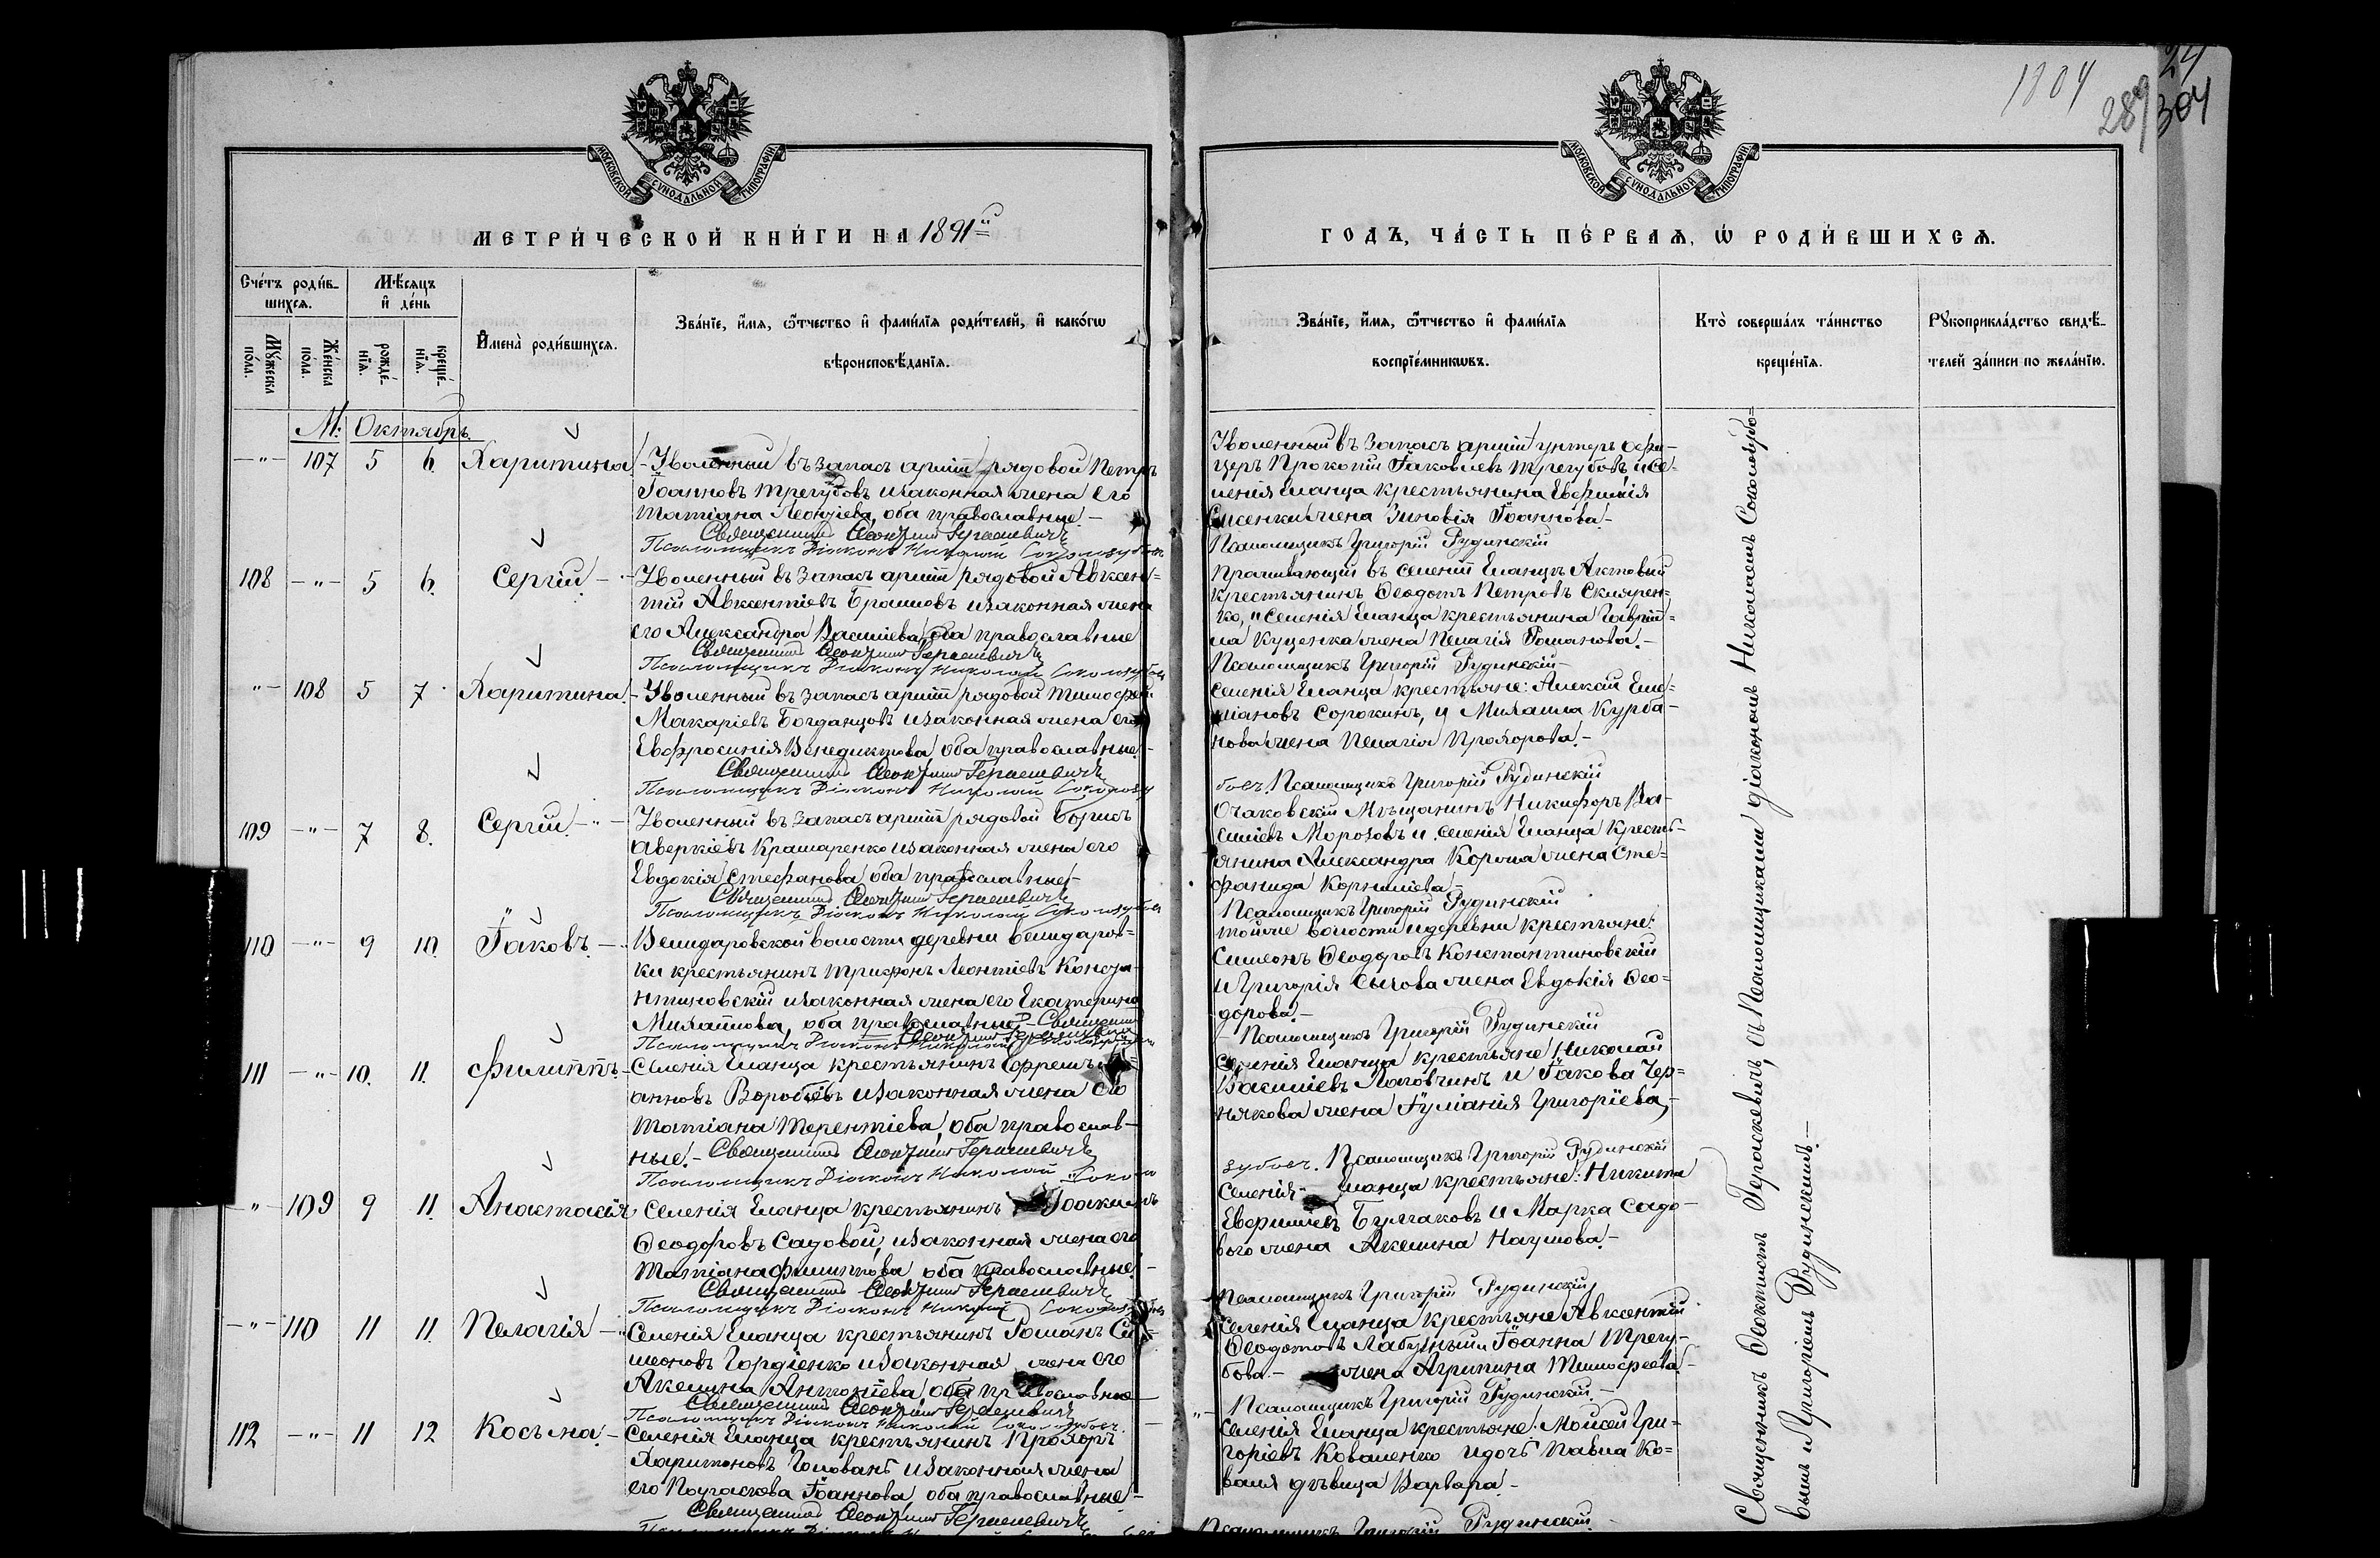 1804
24
289
304
МОСКОВСКОЙ СѴНОДАЛЬНОЙ ТИПОГРАФИИ
МОСКОВСКОЙ СѴНОДАЛЬНОЙ ТИПОГРАФИИ
МЕТРИ́ЧЕСКОЙ КНИ́ГИ НА 1891й
ГОДЪ, ЧА́СТЬ ПЕ́РВАѦ, Ѡ҆ РОДИ́ВШИХСѦ.
Сче́тъ роди́вшихсѧ.
Мꙋ́жеска по́ла.
Же́нска по́ла.
Мѣ́сѧцъ и҆ де́нь
рожде́нїѧ.
креще́нїѧ.
И҆мена̀ роди́вшихсѧ.
Зва́нїе, и҆́мѧ, ѻ҆́тчество и҆ фами́лїѧ роди́телей, и҆ како́гѡ
вѣроисповѣ́данїѧ.
Зва́нїе, и҆́мѧ, ѻ҆́тчество и҆ фами́лїѧ
воспрїе́мникѡвъ.
Кто̀ соверша́лъ та́инство
креще́нїѧ.
Рꙋкоприкла́дство свидѣ́-
телей за́писи по жела́нїю.
М. Октябрь.
-"- 107 5 6. Харитина
Уволенный въ запасъ арміи рядовой Петръ
Іоанновъ Трегубовъ и законная жена его
Татіана Леонтіева, оба православные.-
Священникъ Ѳеоктистъ Гераскевичъ
Псаломщикъ Діаконъ Николай Соколозубовъ
Уволенный въ запасъ арміи унтеръ офи-
церъ Прокопій Іаковлевъ Трегубовъ и се-
ленія Еланца крестьянина Евфимія
Лисенки жена Зиновія Іоаннова.-
Псаломщикъ Григорій Рудинскій
108 -"- 5 6. Сергій.-
Уволенный въ запасъ арміи рядовой Авксен=
тій Авксентіевъ Ерашовъ и законная жена
его Александра Василіева, оба православные
Священникъ Ѳеоктистъ Гераскевичъ
Псаломщикъ Діаконъ Николай Соколозубовъ
Проживающій въ селеніи Еланцъ Актовый
крестьянинъ Ѳеодотъ Петровъ Скляренко=
ко, и селенія Еланца крестьянина Гавріи=
ла Куценка жена Пелагія Романова.-
Псаломщикъ Григорій Рудинскій
"- 108 5 7. Харитина.
Уволенный въ запасъ арміи рядовой Тимоѳей
Макаріевъ Богданцовъ и законная жена его
Евфросинія Венедиктова, оба православные.-
Священникъ Ѳеоктистъ Гераскевичъ
Псаломщикъ Діаконъ Николай Соколозу
Селенія Еланца крестьяне: Алексѣй Еме=
ліановъ Сорокинъ, и Михаила Курба-
нова жена Пелагія Прохорова.-
бовъ. Псаломщикъ Григорій Рудинскій
109 -"- 7 8. Сергій.
Уволенный въ запасъ арміи рядовой Борисъ
Аверкіевъ Крамаренко и законная жена его
Евдокія Стефанова, оба православные.-
Священникъ Ѳеоктистъ Гераскевичъ
Псаломщикъ Діаконъ Николай Соколозубовъ
Очаковскій Мѣщанинъ Никифоръ Ва-
силіевъ Морозовъ и селенія Еланца кресть-
янина Александра Короля жена Сте=
фанида Корниліева.-
Псаломщикъ Григорій Рудинскій
110 -"- 9 10. Іаковъ.-
Велидаровской волости деревни Велидаров=
ки крестьянинъ Трифонъ Леонтіевъ Конста-
нтиновскій и законная жена его Екатерина
Михайлова, оба православные.- Священникъ
Ѳеоктистъ Гераскевичъ
Псаломщикъ Діаконъ Николай Соколозубовъ
Той же волости и деревни крестьяне:
Симеонъ Ѳеодоровъ Константиновскій
и Григорія Сычова жена Евдокія Ѳео=
дорова.-
Псаломщикъ Григорій Рудинскій
111 -"- 10. 11. Филиппъ.
Селенія Еланца крестьянинъ Ефремъ
анновъ Воробіевъ и законная жена его
Татіана Терентіева, оба православ-
ные.- Священникъ Ѳеоктистъ Гераскевичъ
Псаломщикъ Діаконъ Николай Соколо
Селенія Еланца крестьяне Николай
Василіевъ Логовчинъ и Іакова Чер=
някова жена Іуліанія Григоріева,-
зубовъ. Псаломщикъ Григорій Рудинскій
-"- 109 9 11. Анастасія
Селенія Еланца крестьянинъ Іоакимъ
Ѳеодоровъ Садовой, и законная жена его
Татіана Филиппова, оба православные.-
Священникъ Ѳеоктистъ Гераскевичъ
Псаломщикъ Діаконъ Николай Соколозубовъ
Селенія Еланца крестьяне: Никита
Евфиміевъ Булгаковъ и Марка Садо-
вого жена Акилина Наумова.-
Псаломщикъ Григорій Рудинскій
-"- 110 11 11. Пелагія
Селенія Еланца крестьянинъ Романъ Си-
меоновъ Гордіенко и законная жена его
Акилина Антоніева, оба православные
Священникъ Ѳеоктистъ Гераскевичъ
Псаломщикъ Діаконъ Николай Соколозубовъ.
Селенія Еланца крестьяне Авксентій
Ѳеодотовъ Лабунный и Іоанна Трегу-
бова.- жена Агрипина Тимоѳеева.-
Псаломщикъ Григорій Рудинскій.-
112 -"- 11 12 Косьма.-
Селенія Еланца крестьянинъ Прохоръ
Харитоновъ Голованъ и законная жена
его Параскева Іоаннова, оба православные.-
Священникъ Ѳеоктистъ Гераскевичъ
Селенія Еланца крестьяне: Мойсей Гри-
горіевъ Коваленко и дочь Павла Ко=
валя дѣвица Варвара.-
Псаломщикъ Григорій Рудинскій.
Священникъ Ѳеоктистъ Гераскевичъ, съ Псаломщиками діакономъ Николаемъ Соколозубо=
вымъ и Григоріемъ Рудинскимъ.-